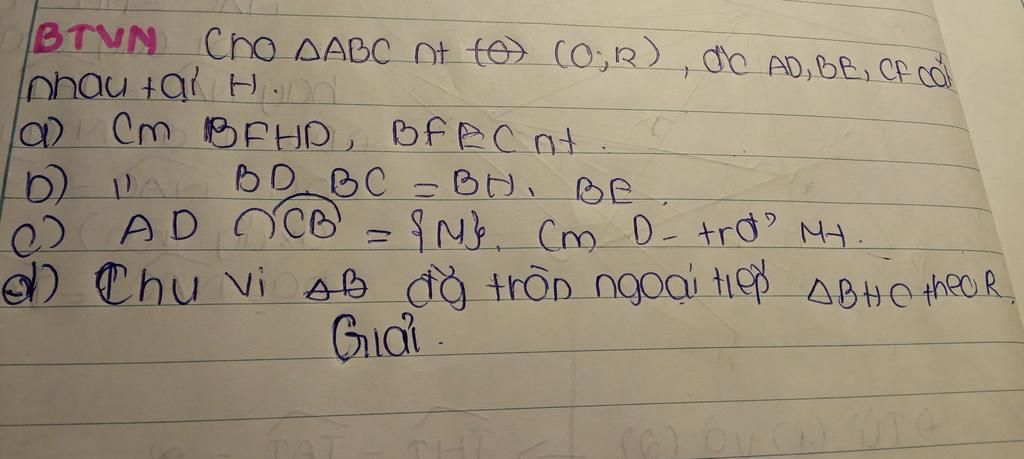 BTVN Cho ΔABC nt (O;R), đc AD, BE, CF cắt
nhau tại H.
a) Cm BFHD, BFEC nt.
b) " BD. BC = BH. BE.
c) AD ∩ CB = {N}. Cm D - trđ' NH.
d) Chu vi đg tròn ngoại tiếp ΔBHC theo R.
Giải.